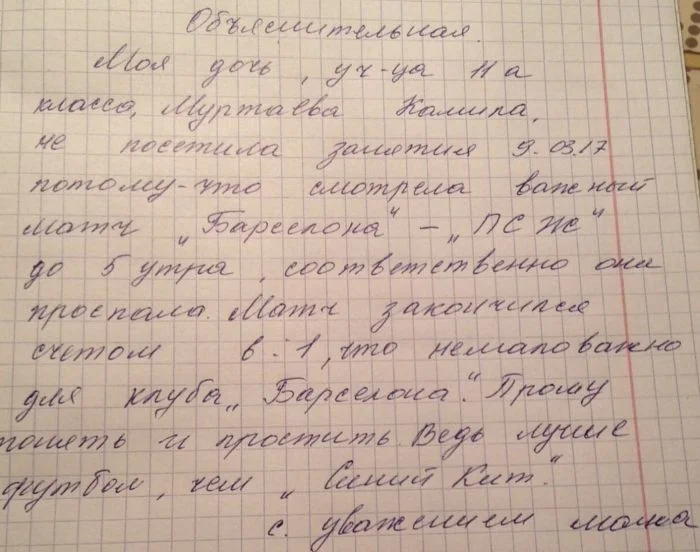 Объяснительная.
Моя дочь, уч-ца 11 а
класса, Муртаева Камила,
не посетила занятия 9.03.17
потому-что смотрела важный
матч „Барселона" – „ПСЖ"
до 5 утра, соответственно она
проспала. Матч закончился
счетом 6:1, что немаловажно
для клуба „Барселона". Прошу
понять и простить. Ведь лучше
футбол, чем „Синий Кит".
с. уважением мама